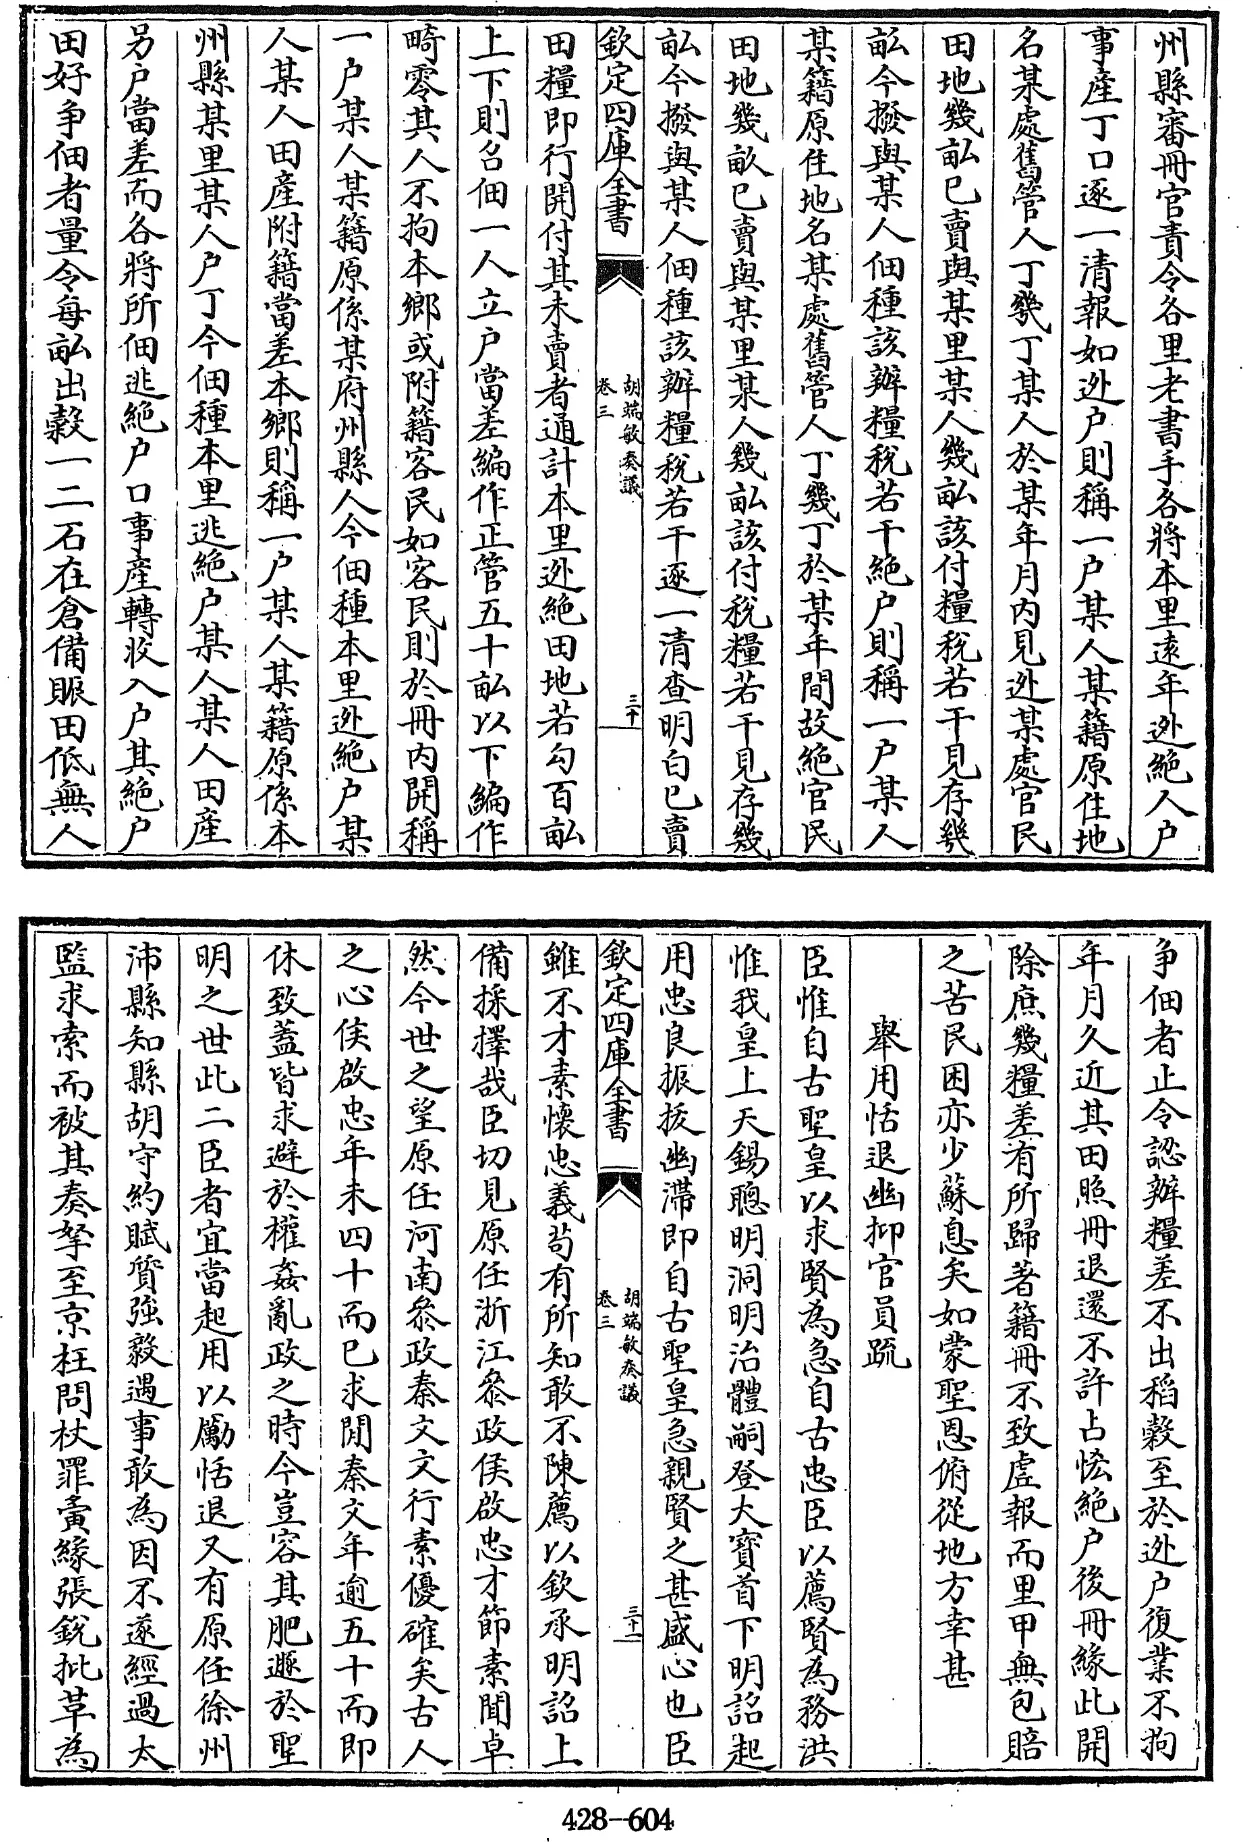 州縣審冊官責令各里老書手各將本里遠年逃絶人户
事産丁口逐一清報如逃户則稱一户某人某籍原住地
名某處舊管人丁幾丁某人於某年月内見逃某處官民
田地幾畆已賣與某里某人幾畆該付糧税若干見存幾
畆今撥與某人佃種該辦糧税若干絶户則稱一户某人
某籍原住地名某處舊管人丁幾丁於某年間故絶官民
田地幾畝已賣與某里某人幾畆該付税糧若干見存幾
畆今撥與某人佃種該辦糧税若干逐一清查明白已賣
欽定四庫全書
胡端敏奏議
卷三
三十
田糧即行開付其未賣者通計本里逃絶田地若勾百畆
上下則召佃一人立户當差編作正管五十畆以下編作
畸零其人不拘本鄉或附籍客民如客民則於冊内開稱
一户某人某籍原係某府州縣人今佃種本里逃絶户某
人某人田産附籍當差本鄉則稱一户某人某籍原係本
州縣某里某人户丁今佃種本里逃絶户某人某人田産
另户當差而各將所佃逃絶户口事産轉收入户其絶户
田好争佃者量令每畆出穀一二石在倉備賑田低無人
争佃者止令認辦糧差不出稻穀至於逃户復業不拘
年月久近其田照冊退還不許占恡絶户後冊縁此開
除庶幾糧差有所歸著籍冊不致虚報而里甲無包賠
之苦民困亦少蘇息矣如蒙聖恩俯從地方幸甚
舉用恬退幽抑官員疏
臣惟自古聖皇以求賢為急自古忠臣以薦賢為務洪
惟我皇上天錫聰明洞明治體嗣登大寶首下明詔起
用忠良振拔幽滯即自古聖皇急親賢之甚盛心也臣
欽定四庫全書
胡端敏奏議
卷三
三十一
雖不才素懷忠義茍有所知敢不陳薦以欽承明詔上
備採擇哉臣切見原任浙江叅政侯啟忠才節素聞卓
然今世之望原任河南叅政秦文文行素優確矣古人
之心侯啟忠年未四十而已求閒秦文年逾五十而即
休致蓋皆求避於權姦亂政之時今豈容其肥遯於聖
明之世此二臣者宜當起用以勵恬退又有原任徐州
沛縣知縣胡守約賦質強毅遇事敢為因不遂經過太
監求索而被其奏拏至京枉問杖罪夤縁張銳批革為
428--604